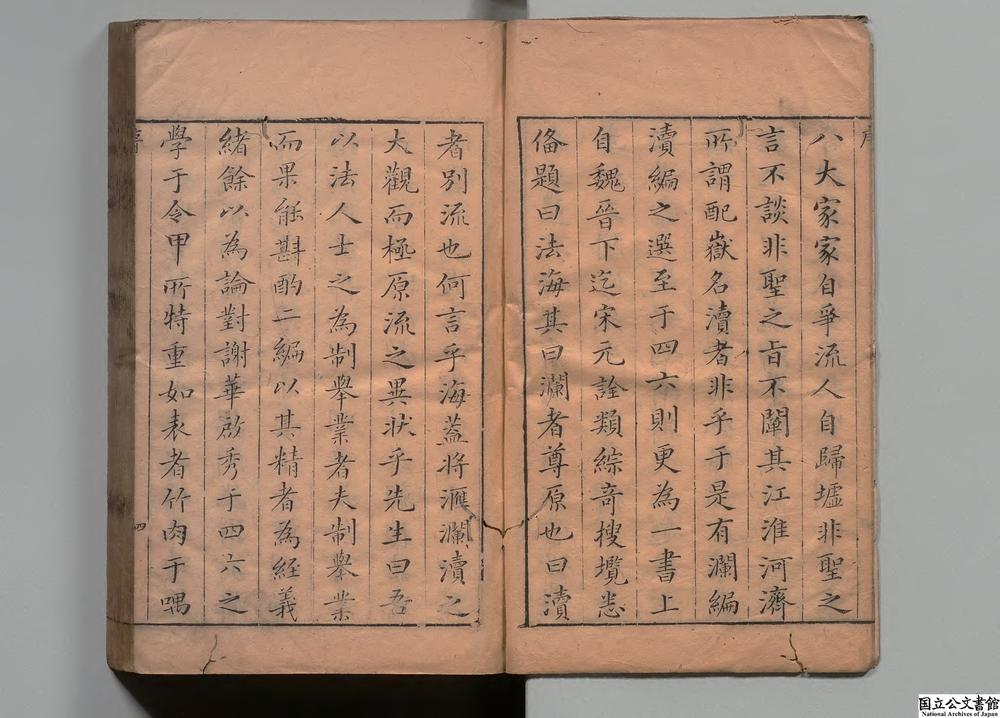 八大家家自爭流人自歸墟非聖之
言不談非聖之旨不闡其江淮河濟
所謂配嶽名瀆者非乎于是有瀾編
瀆編之選至于四六則更為一書上
自魏晉下迄宋元詮類綜奇搜攬悉
備題曰法海其曰瀾者尊原也曰瀆
者別流也何言乎海蓋將滙瀾瀆之
大觀而極原流之異狀乎先生曰吾
以法人士之為制舉業者夫制舉業
而果能斟酌二編以其精者為經義
緒餘以為論對謝華啟秀于四六之
學于令甲所特重如表者竹肉于喁
四
国立公文書館
National Archives of Japan